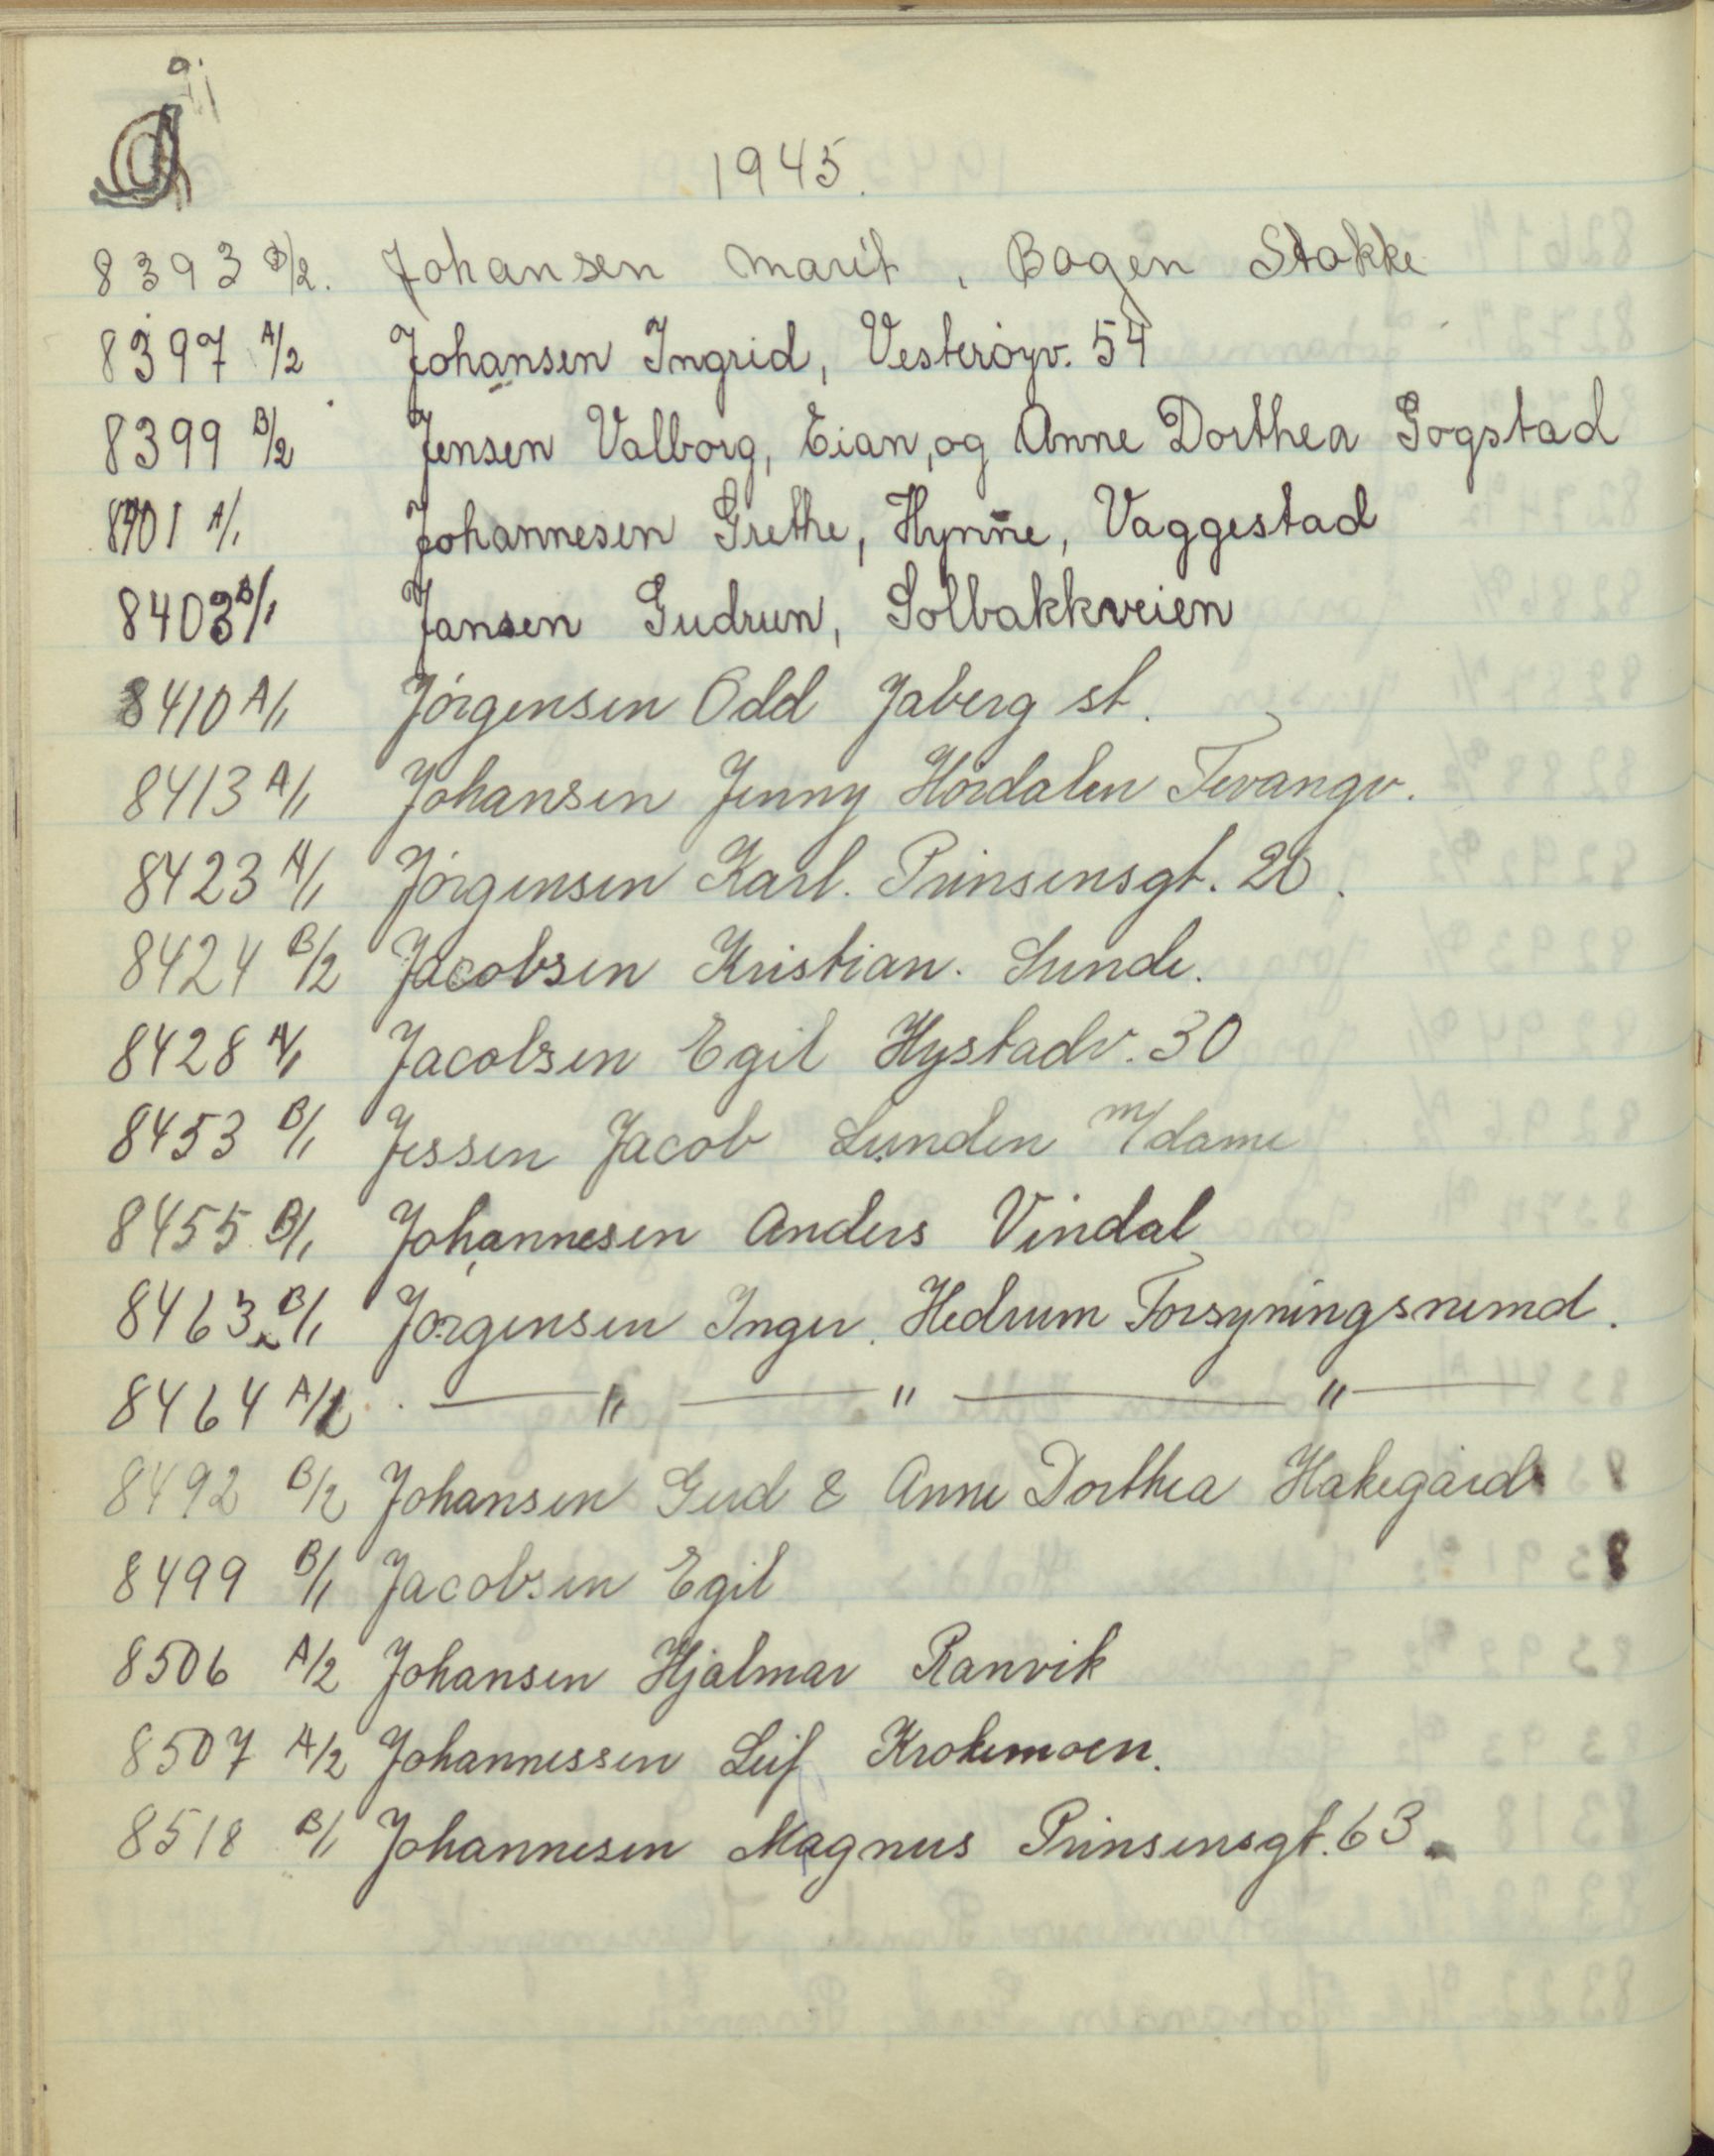 J
1945.
8393 B/2. Johansen Marit, Bogen Stokke
8397 A/2 Johansen Ingrid, Vesterøyv. 54
8399 B/2 Jensen Valborg, Eian, og Anne Dorthea Gogstad
8401 A/1 Johannesen Grethe, Hynne, Vaggestad
8403 B/1 Jansen Gudrun, Solbakkveien
8410 A/1 Jörgensen Odd Jaberg st.
8413 A/1 Johansen Jenny Hördalen Tevangv.
8423 A/1 Jörgensen Karl. Prinsensgt. 26.
8424 B/2 Jacobsen Kristian. Sunde.
8428 A/1 Jacobsen Egil Hystadv. 30
8453 B/1 Jessen Jacob Lunden m/dame
8455 B/1 Johannesen Anders Vindal
8463 B/1 Jörgensen Inger. Hedrum Forsyningsnemd.
8464 A/2 — " — " — " —
8492 B/2 Johansen Gerd & Anne Dorthea Hakegård
8499 B/1 Jacobsen Egil
8506 A/2 Johansen Hjalmar Ranvik
8507 A/2 Johannessen Leif Krokemoen.
8518 B/1 Johannesen Magnus Prinsensgt. 63.